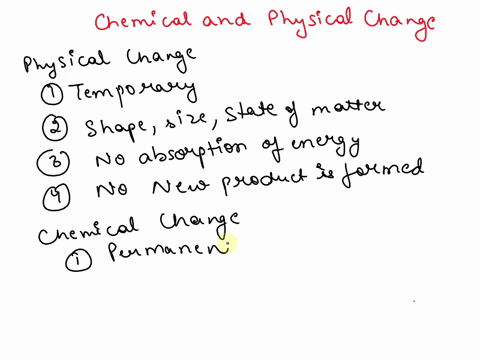 Chemical and Physical Change
Physical Change
① Temporary
② Shape, size, State of matter
③ No absorption of energy
④ No New product is formed
Chemical Change
① Permanen